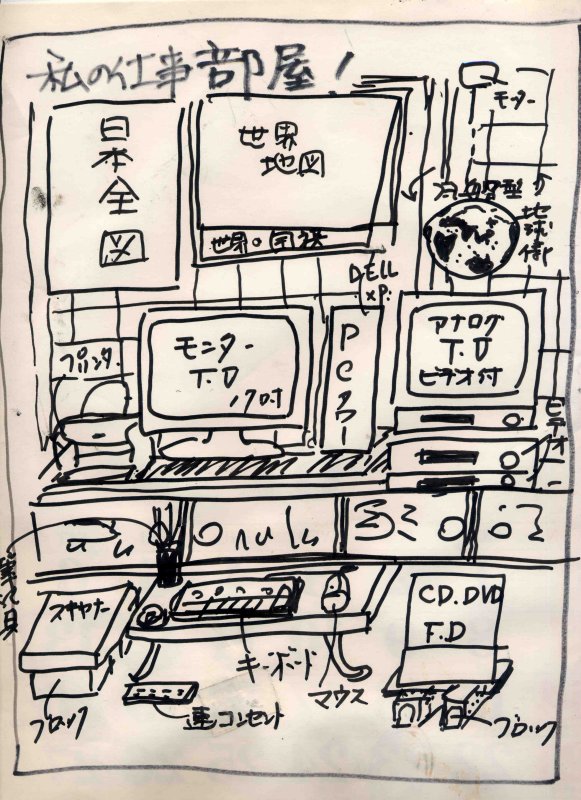 私の仕事部屋!
モニター
日本全図
世界
地図
世界の国旗
地球儀
DELL
XP.
プリンター
モニター
T.V
アナログ
T.V
ビデオ付
PCタワー
ビデオ
筆記具
スキャナー
CD.DVD
F.D
キーボード
マウス
ブロック
連コンセント
ブロック